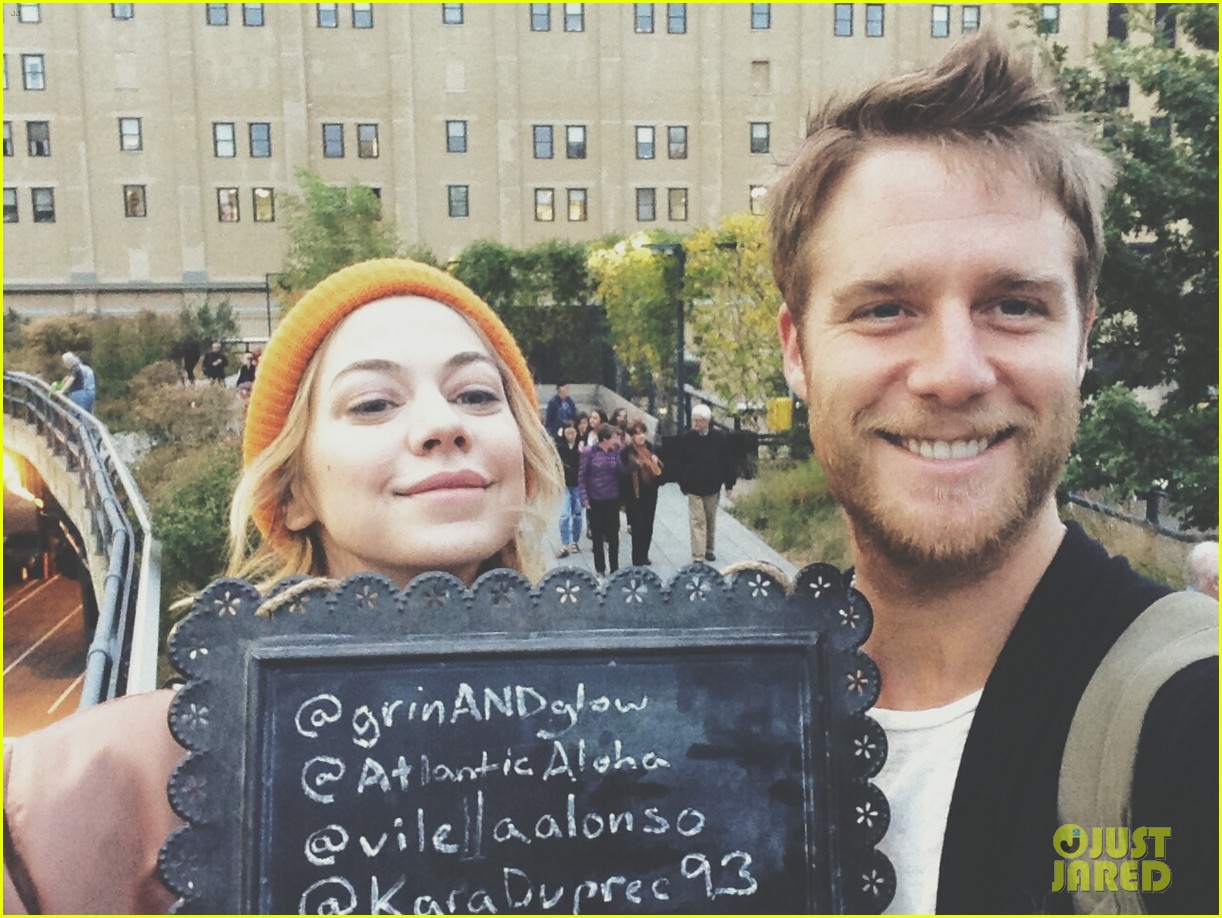 @grinANDglow
@AtlanticAloha
@vilellaalonso
@KaraDupree93
JUST
JARED